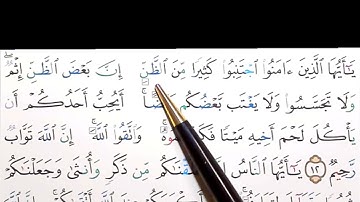 يَـٰٓأَيُّهَا ٱلَّذِينَ ءَامَنُوا۟ ٱجْتَنِبُوا۟ كَثِيرًا مِّنَ ٱلظَّنِّ إِنَّ بَعْضَ ٱلظَّنِّ إِثْمٌ ۖ
وَلَا تَجَسَّسُوا۟ وَلَا يَغْتَب بَّعْضُكُم أَيُحِبُّ أَحَدُكُمْ أَن
يَأْكُلَ لَحْمَ أَخِيهِ مَيْتًا وَٱتَّقُوا۟ ٱللَّهَ ۚ إِنَّ ٱللَّهَ تَوَّابٌ
رَّحِيمٌ ١٢ يَـٰٓأَيُّهَا ٱلنَّاسُ مِّن ذَكَرٍ وَأُنثَىٰ وَجَعَلْنَـٰكُمْ